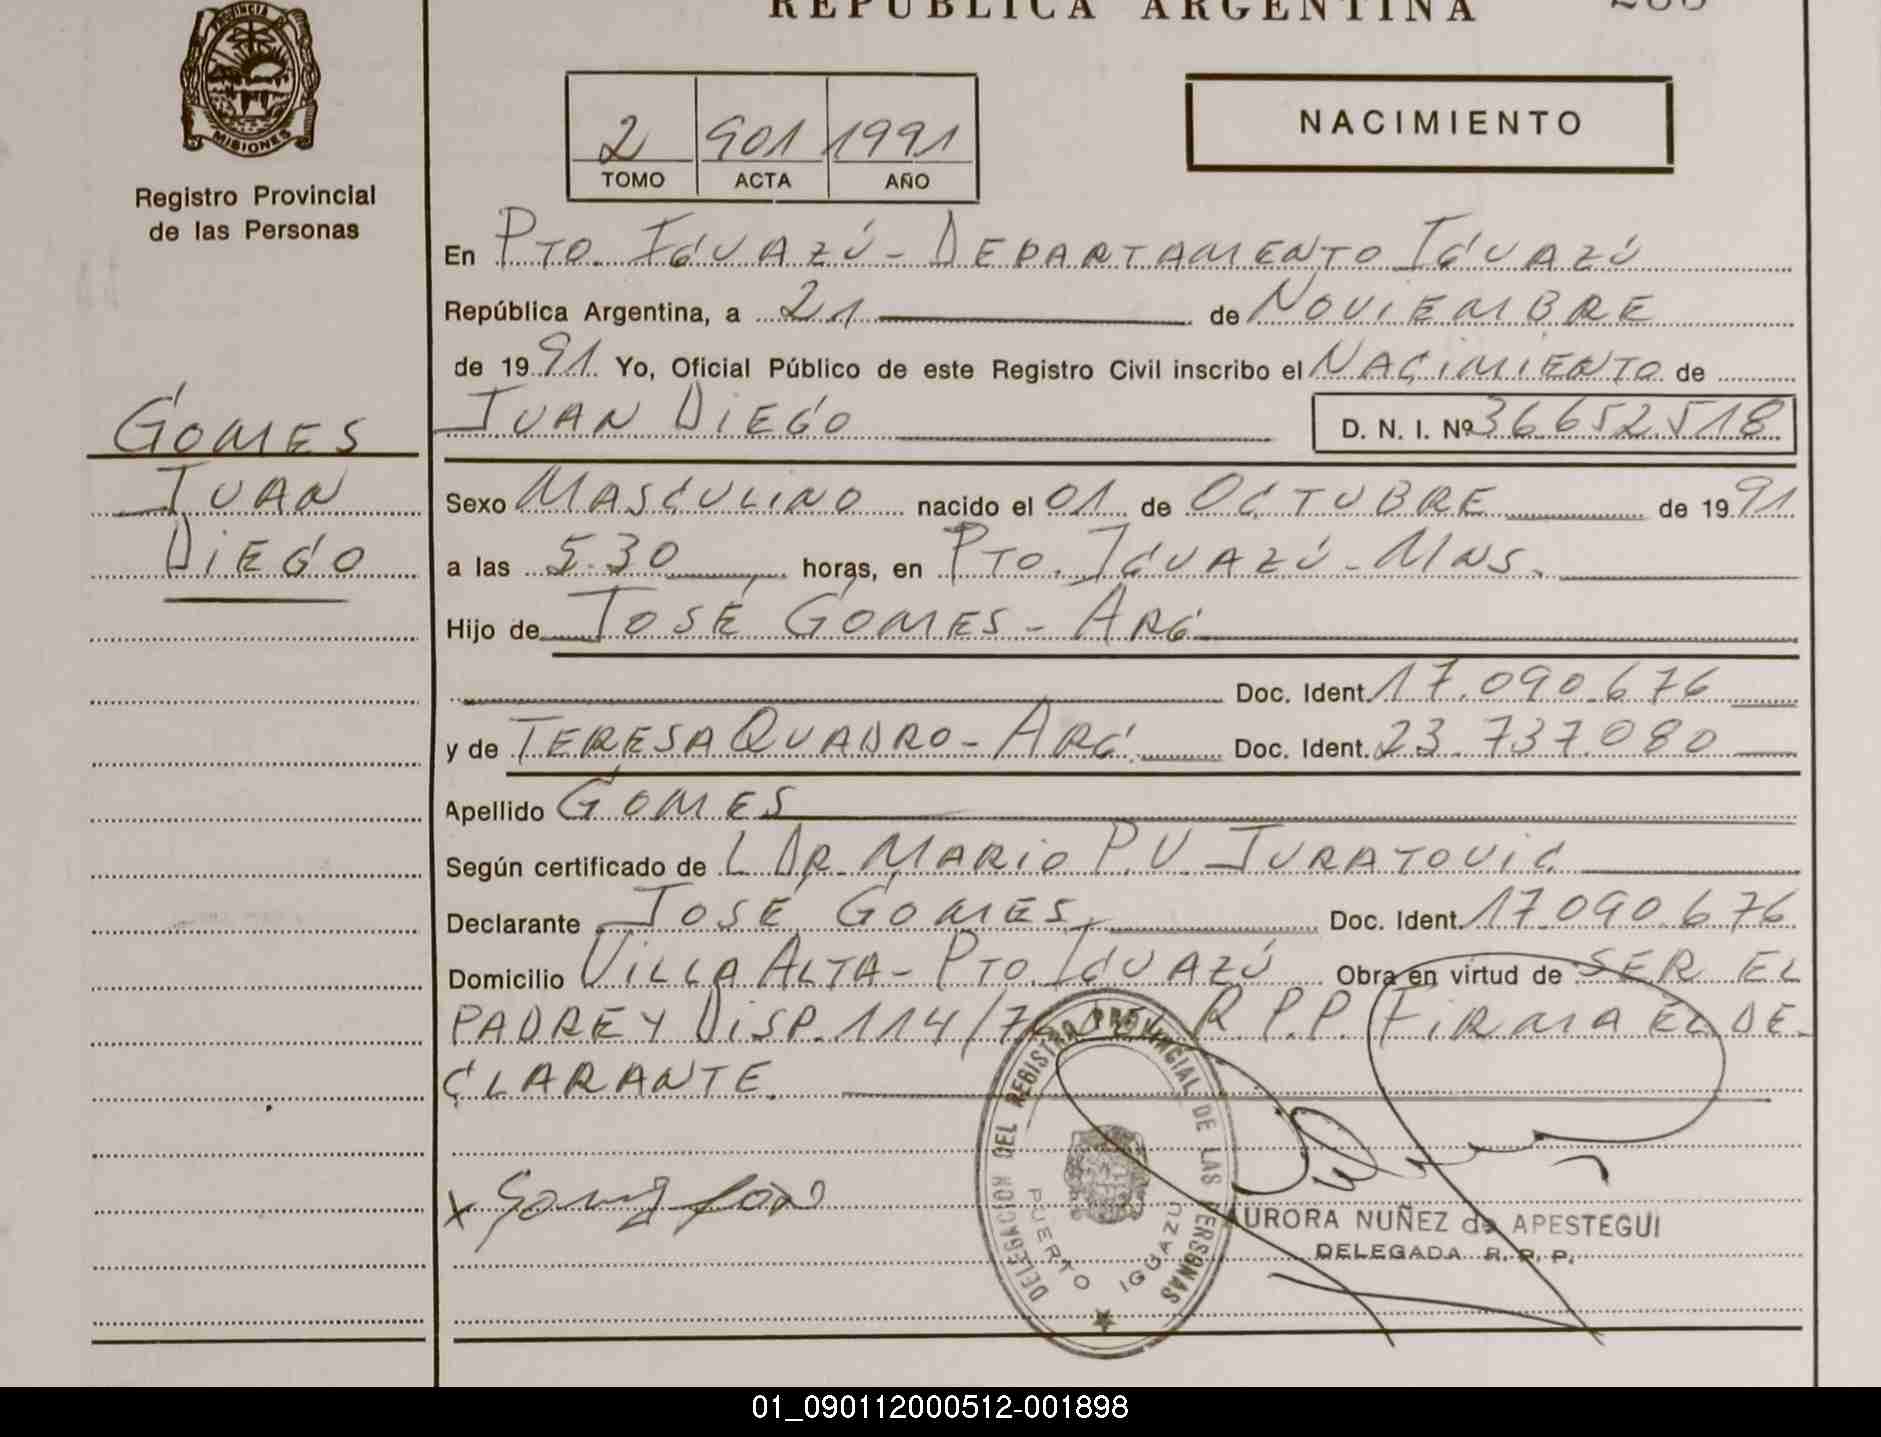 REPUBLICA ARGENTINA
PROVINCIA DE
MISIONES
Registro Provincial
de las Personas
2 901 1991
TOMO ACTA AÑO
NACIMIENTO
En PTO. IGUAZÚ - DEPARTAMENTO IGUAZÚ
República Argentina, a 21 de NOVIEMBRE
de 1991. Yo, Oficial Público de este Registro Civil inscribo el NACIMIENTO de
JUAN DIEGO D. N. I. Nº 36652518
GOMES
JUAN
DIEGO
Sexo MASCULINO nacido el 01 de OCTUBRE de 1991
a las 5.30 horas, en PTO. IGUAZÚ - MNS.
Hijo de JOSÉ GOMES - ARG
Doc. Ident. 17.090.676
y de TERESA QUADRO - ARG. Doc. Ident. 23.737.080
Apellido GOMES
Según certificado de L DR. MARIO P.V. JURATOVIC
Declarante JOSÉ GOMES, Doc. Ident. 17.090.676
Domicilio VILLA ALTA - PTO. IGUAZÚ Obra en virtud de SER EL
PADRE Y DISP. 114/ R.P.P. FIRMA EL DE-
CLARANTE.
x Gomes José
DELEGACION DEL REGISTRO PROVINCIAL DE LAS PERSONAS
PUERTO IGUAZU
AURORA NUÑEZ de APESTEGUI
DELEGADA R. P. P.
01_090112000512-001898